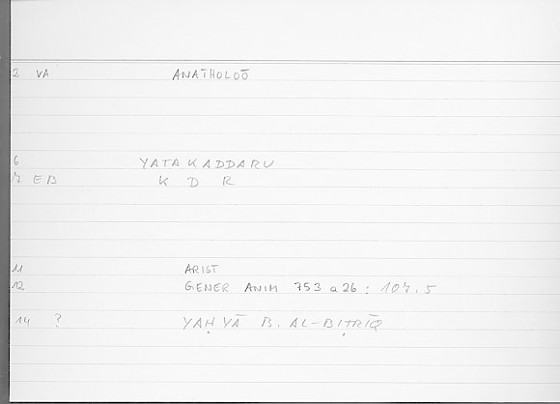 2 VA ANATHOLOŌ
6 YATAKADDARU
7 EB K D R
11 ARIST
12 GENER ANIM 753 a 26 : 107.5
14 ? YAḤYĀ B. AL-BIṬRĪQ